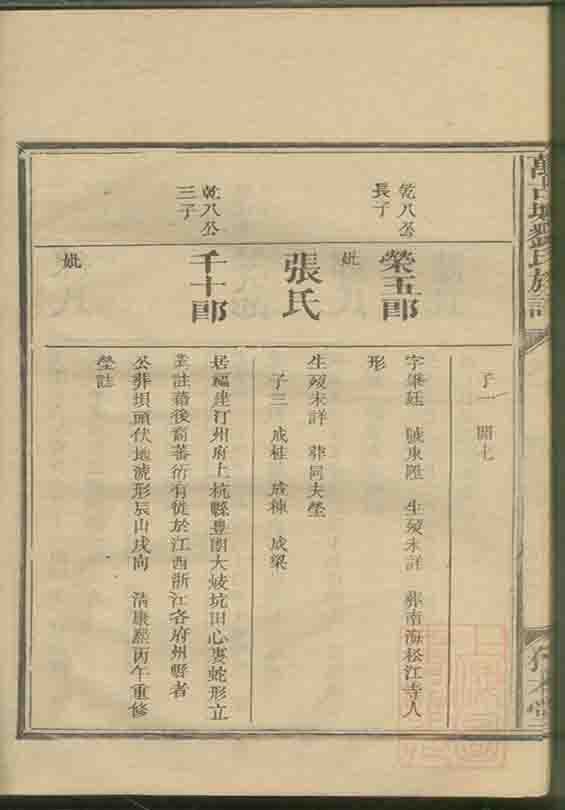 劉氏族譜
子一 開七
乾八公
長子
榮五郎
字 廷 號東陞 生歿未詳 葬南海松江寺人
形
妣
張氏
生歿未詳 葬同夫塋
子三 成桂 成棟 成梁
乾八公
三子
千十郎
居福建汀州府上杭縣豊朗大坑田心 蛇形立
業註藉後裔蕃衍有徙於江西浙江各府州縣者
公葬垻頭伏地虎形辰山戌向 清康熙丙午重修
塋誌
妣